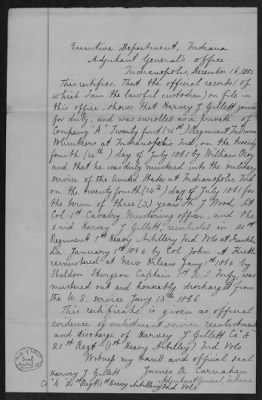 Executive Department, Indiana
Adjutant General's Office
Indianapolis, December 16, 188
This certifies, That the official records (of
which I am the lawful custodian) on file in
this office, shows that Harvey J Gillett joined
for duty, and was enrolled as a private of
Company "A" Twenty first (21st) Regiment Indiana
Volunteers at Indianapolis Ind, on the twenty
fourth (24th) day of July 1861 by William Roy
and that he was duly mustered into the military
service of the United States at Indianapolis Ind
on the twenty fourth (24th) day of July 1861 for
the term of three (3) years by T J Wood, Lt
Col 1st Cavalry Mustering officer, and the
said Harvey J Gillett, reenlisted in 21st
Regiment 1st Heavy Artillery Ind Vols at
La January 1st 186 by Col John A Keith
remustered at New Orleans Jany 186 by
Sheldon Sturgeon Captain 1st U.S. Infy, was
mustered out and honorably discharged from
the U.S. service Jany 13th 1866
This certificate is given as official
evidence of enlistment service reenlistment
and discharge of Harvey J Gillett Co "A"
21st Regt (1st Heavy Artillery) Ind Vols
Witness my hand and official seal
Harvey J Gillett James R. Carnahan
Co "A" 21st Regt 1st Heavy Artillery Ind Vols Adjutant General, Indiana